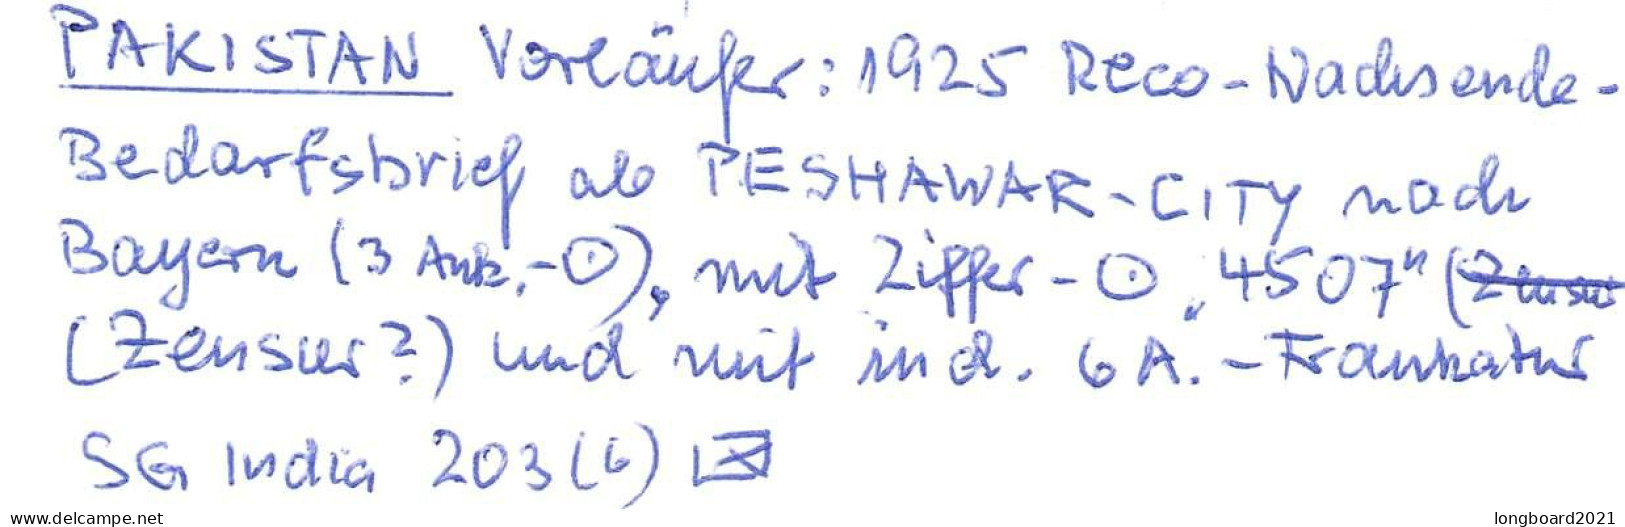 PAKISTAN Vorläufer: 1925 Reco-Nachsende-
Bedarfsbrief ab PESHAWAR-CITY nach
Bayern (3 Ank.-⊙), mit Ziffer-⊙ „4507" (Zensur
(Zensur?) und mit ind. 6 A.-Frankatur
SG India 203 (6) ⊠
www.delcampe.net longboard2021